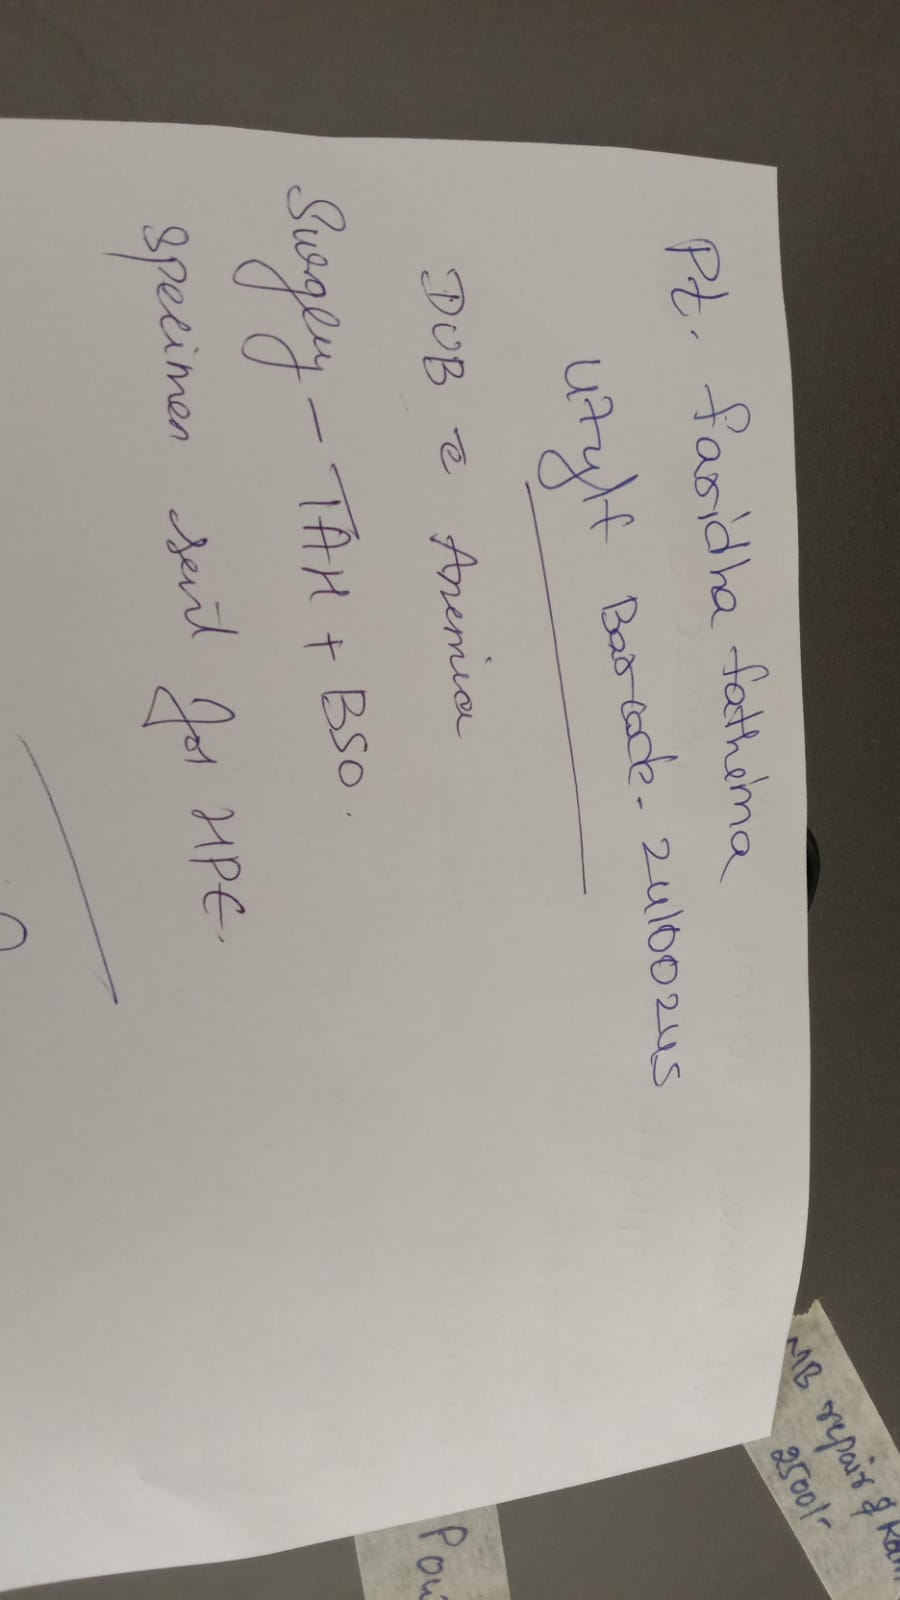 Pt. Faridha fathima
47yrf Barcode - 24100245
DUB c̄ Anemia
Surgery - TAH + BSO.
Specimen sent for HPE.
MB repair &
2500/-